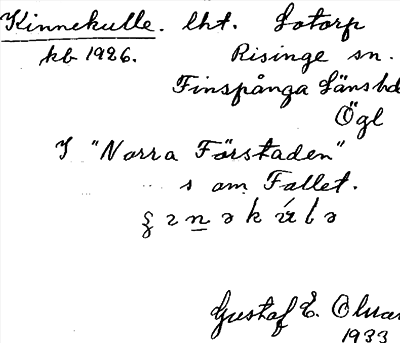 Kinnekulle. lht. Lotorp
kb 1926. Risinge sn.
Finspånga Länshd
Ögl
I "Norra Förstaden"
s om Fallet.
Gustaf E.
1933